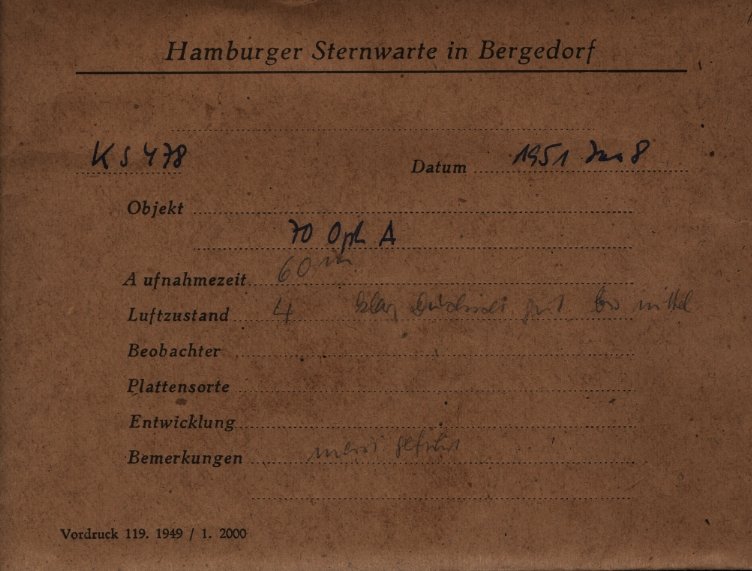 Hamburger Sternwarte in Bergedorf
KS 478 Datum 1951 Jun 8
Objekt
70 Oph A
Aufnahmezeit 60 m
Luftzustand 4 klar, gut bis mittel
Beobachter
Plattensorte
Entwicklung
Bemerkungen geführt
Vordruck 119. 1949 / 1. 2000